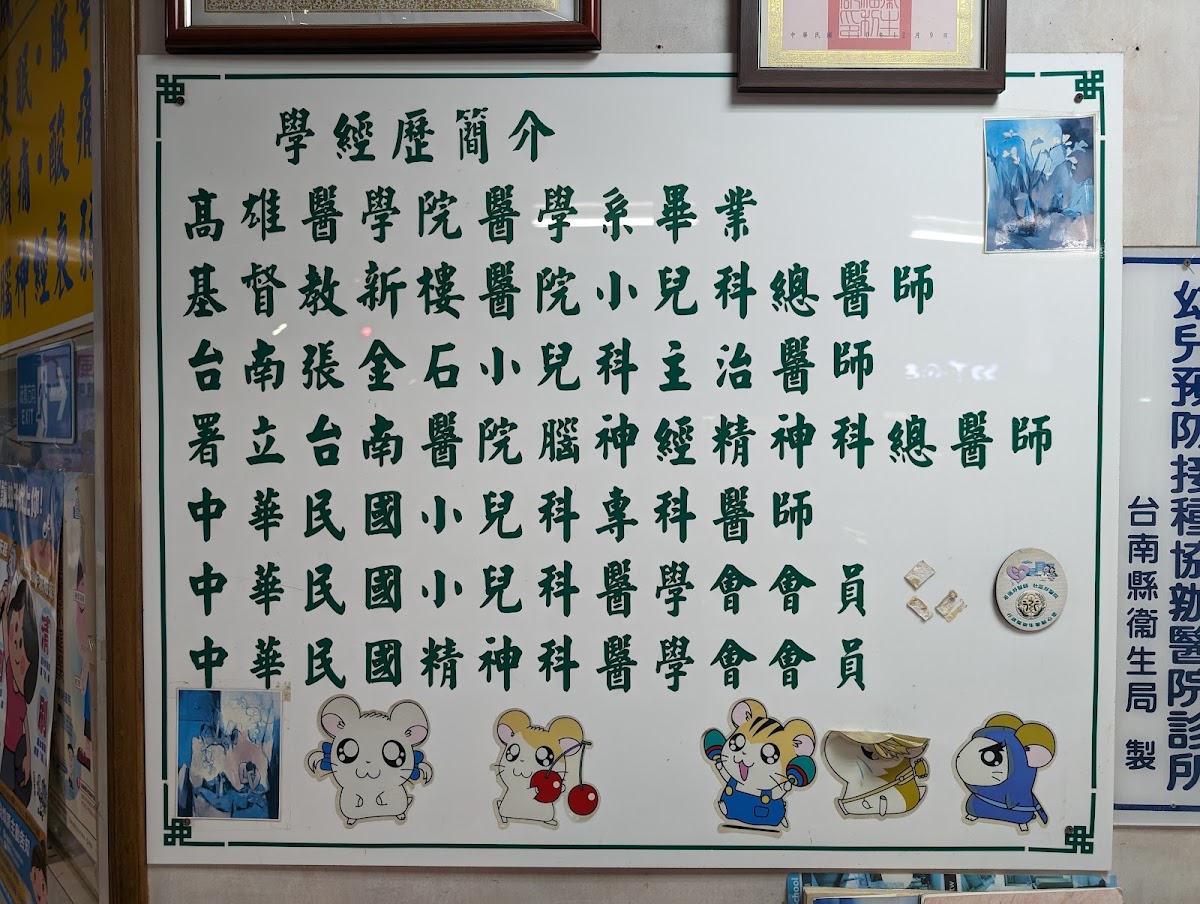 學經歷簡介
高雄醫學院醫學系畢業
基督教新樓醫院小兒科總醫師
台南張金石小兒科主治醫師
署立台南醫院腦神經精神科總醫師
中華民國小兒科專科醫師
中華民國小兒科醫學會會員
中華民國精神科醫學會會員
幼兒預防接種協辦醫院診所
台南縣衛生局 製
EXIT